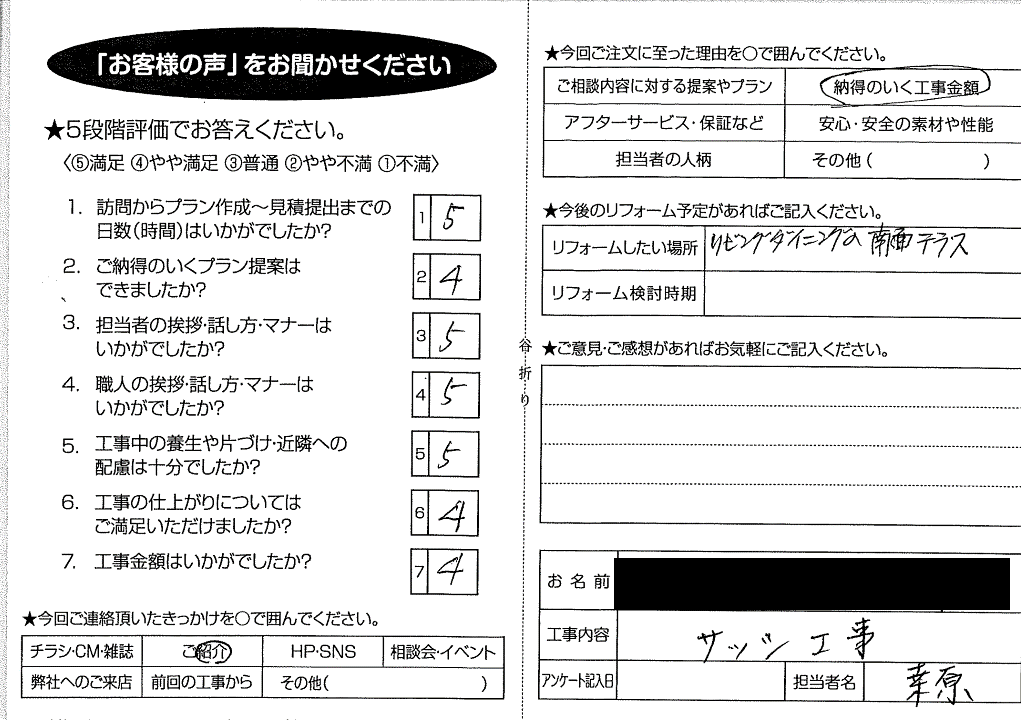 「お客様の声」をお聞かせください
★5段階評価でお答えください。
〈⑤満足 ④やや満足 ③普通 ②やや不満 ①不満〉
1. 訪問からプラン作成～見積提出までの
日数(時間)はいかがでしたか?
1 5
2. ご納得のいくプラン提案は
できましたか?
2 4
3. 担当者の挨拶・話し方・マナーは
いかがでしたか?
3 5
4. 職人の挨拶・話し方・マナーは
いかがでしたか?
4 5
5. 工事中の養生や片づけ・近隣への
配慮は十分でしたか?
5 5
6. 工事の仕上がりについては
ご満足いただけましたか?
6 4
7. 工事金額はいかがでしたか?
7 4
★今回ご連絡頂いたきっかけを○で囲んでください。
チラシ・CM・雑誌 ご紹介 HP・SNS 相談会・イベント
弊社へのご来店 前回の工事から その他( )
谷折り
★今回ご注文に至った理由を○で囲んでください。
ご相談内容に対する提案やプラン 納得のいく工事金額
アフターサービス・保証など 安心・安全の素材や性能
担当者の人柄 その他( )
★今後のリフォーム予定があればご記入ください。
リフォームしたい場所 リビングダイニングの南面テラス
リフォーム検討時期
★ご意見・ご感想があればお気軽にご記入ください。
お名前
工事内容 サッシ工事
アンケート記入日 担当者名 原